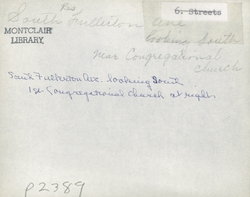 Res
South Fullerton Ave
6. Streets
looking South
MONTCLAIR
LIBRARY.
near Congregational
Church
South Fullerton Ave. looking South
1st Congregational Church at right
p2389